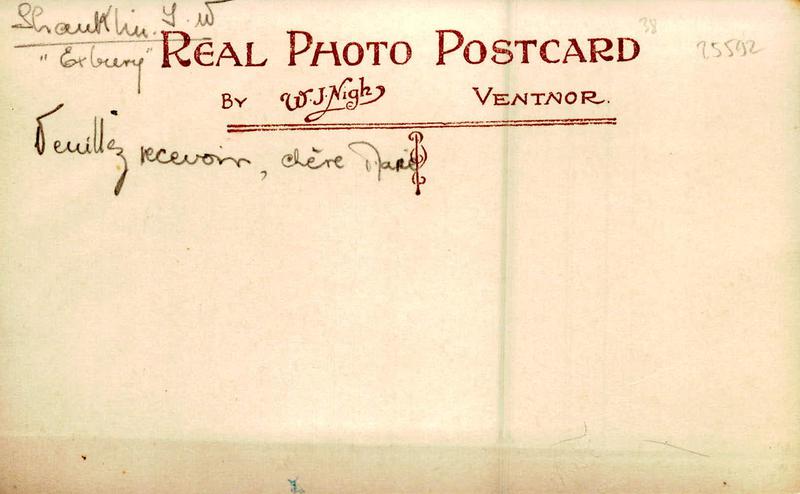 Shanklin. I. W
"Exbury"
REAL PHOTO POSTCARD
38
25592
BY W.J. Nigh VENTNOR.
Veuillez recevoir, chère Marie